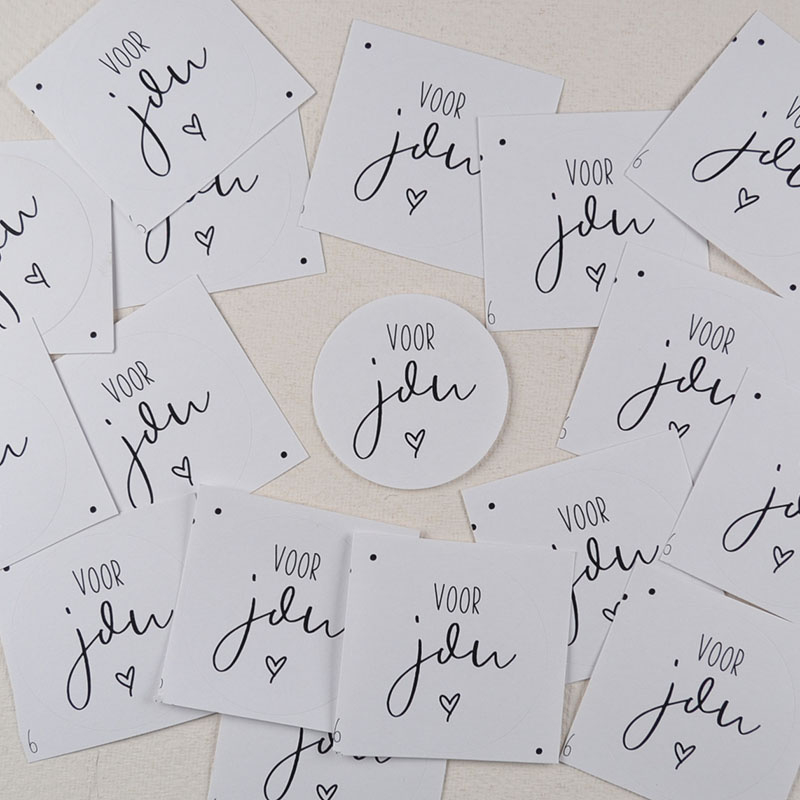 VOOR
jou
VOOR
jou
VOOR
jou
6
6
VOOR
jou
VOOR
jou
6
VOOR
jou
VOOR
jou
6
VOOR
jou
6
VOOR
jou
VOOR
jou
6
VOOR
jou
6
jou